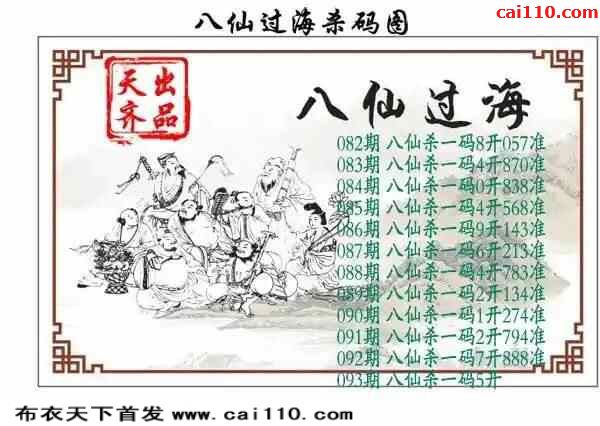 cai110.com
八仙过海杀码图
天齐出品
八仙过海
082期 八仙杀一码8开057准
083期 八仙杀一码4开870准
084期 八仙杀一码0开838准
085期 八仙杀一码4开568准
086期 八仙杀一码9开143准
087期 八仙杀一码6开213准
088期 八仙杀一码4开783准
089期 八仙杀一码2开134准
090期 八仙杀一码1开274准
091期 八仙杀一码2开794准
092期 八仙杀一码7开888准
093期 八仙杀一码5开
布衣天下首发 www.cai110.com